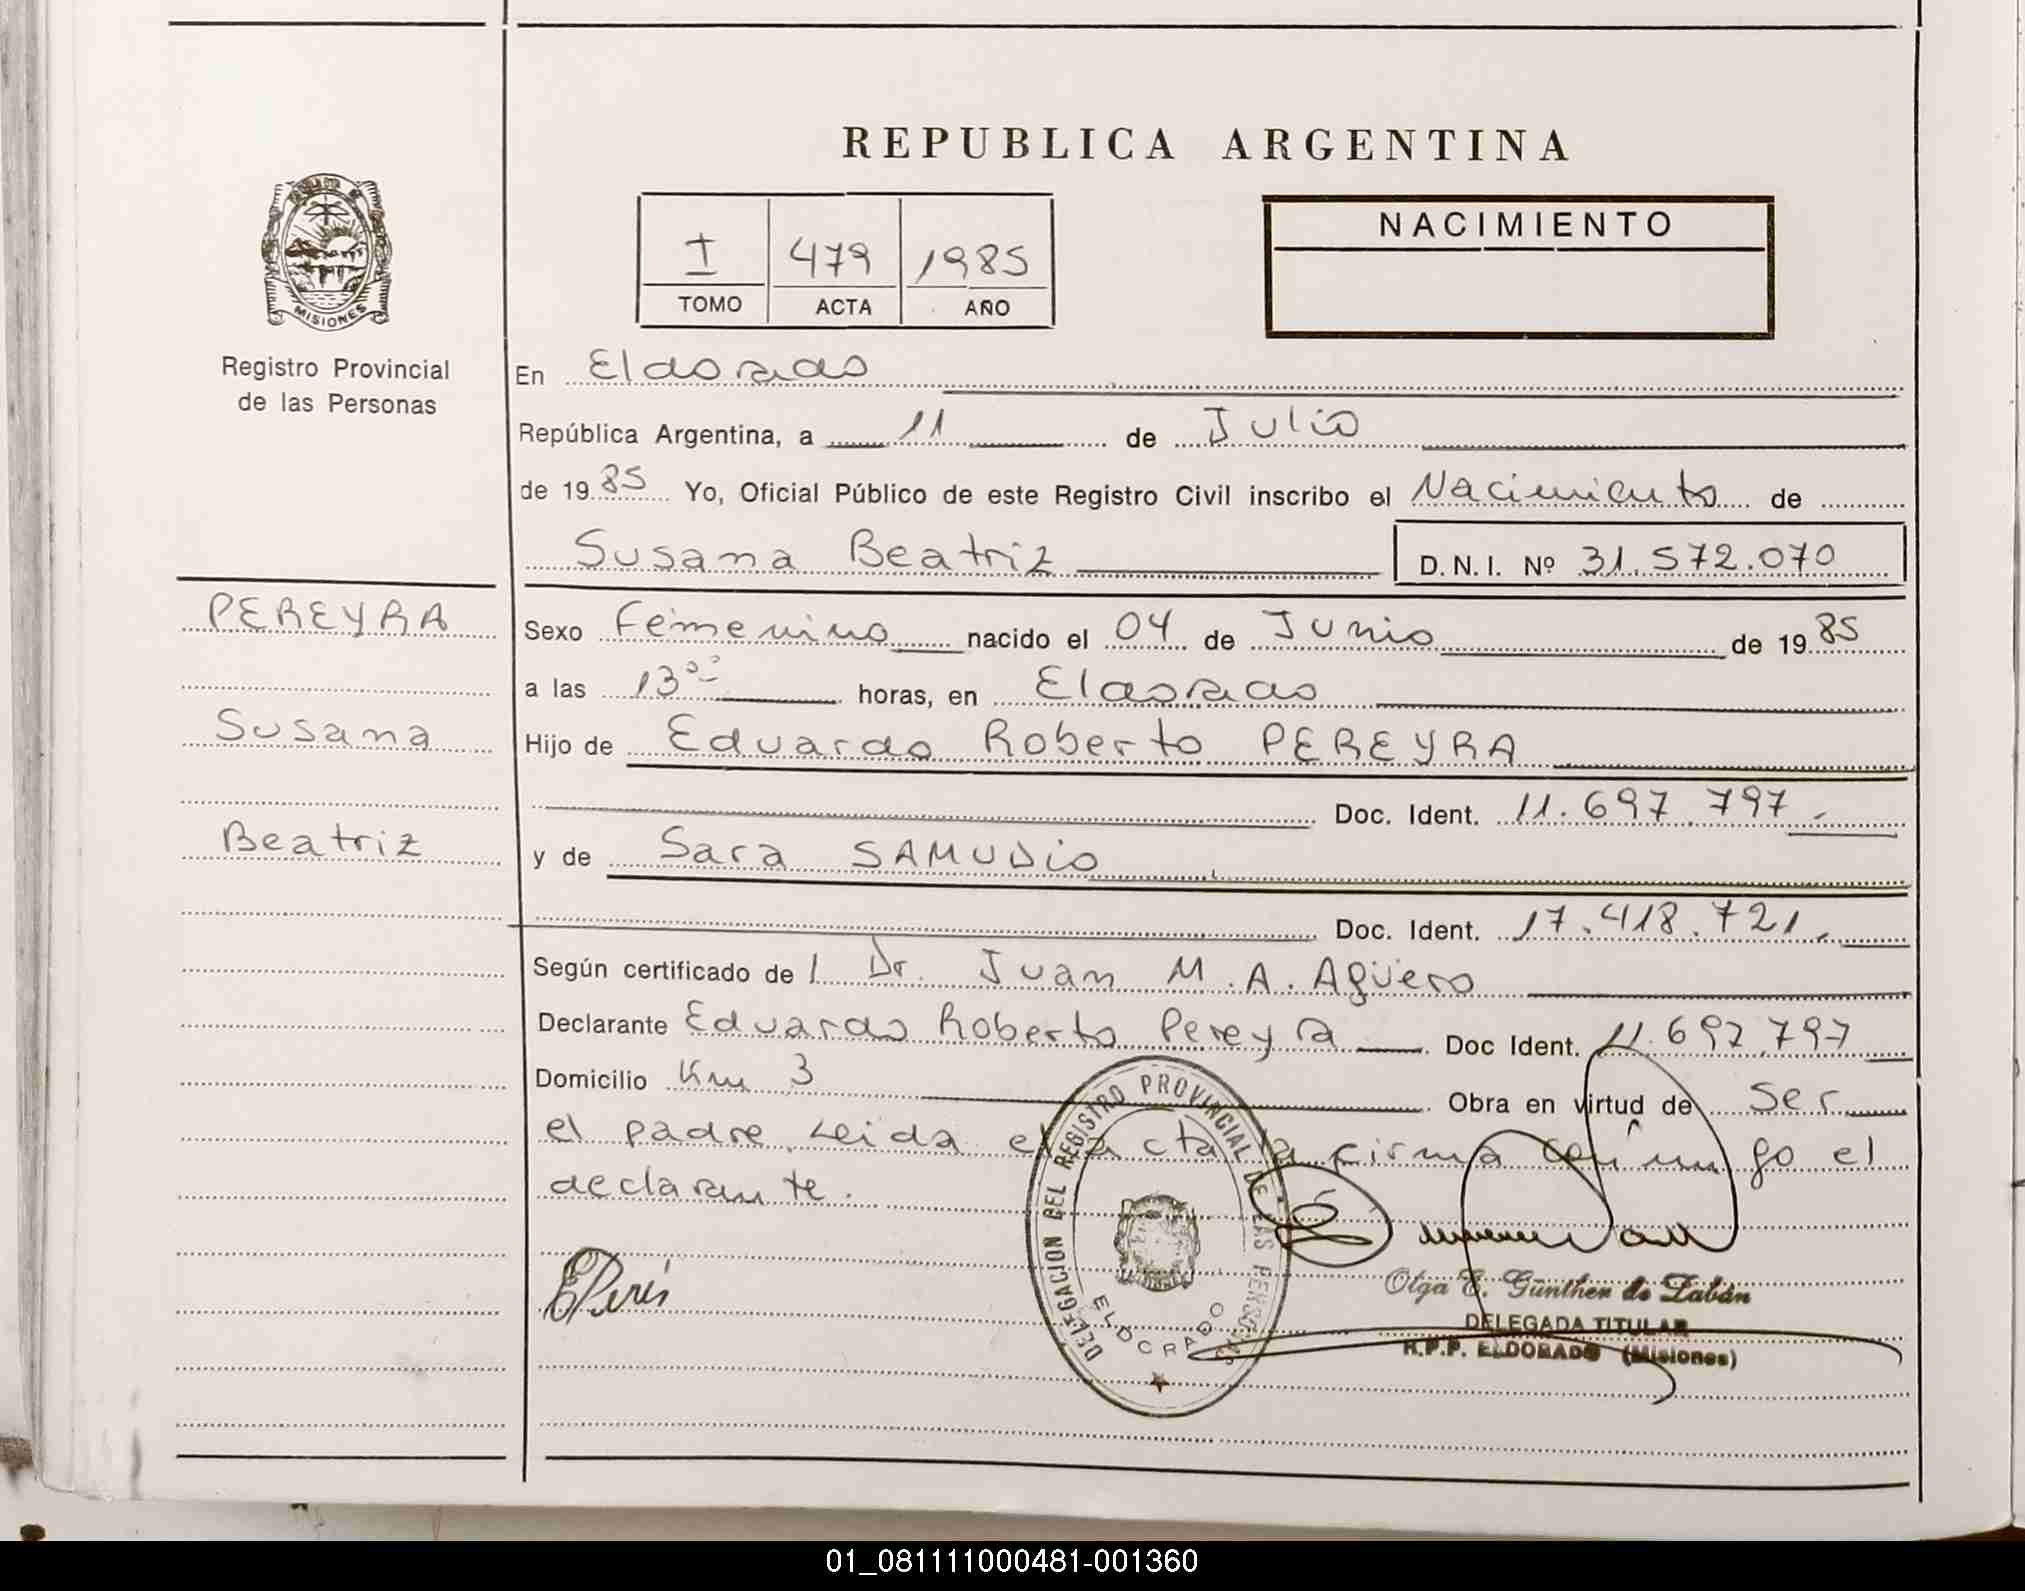 REPUBLICA ARGENTINA
MISIONES
Registro Provincial
de las Personas
I 479 1985
TOMO ACTA AÑO
NACIMIENTO
En Eldorado
República Argentina, a 11 de Julio
de 1985 Yo, Oficial Público de este Registro Civil inscribo el Nacimiento de
Susana Beatriz D.N.I. Nº 31.572.070
PEREYRA
Susana
Beatriz
Sexo Femenino nacido el 04 de Junio de 1985
a las 13⁰⁰ horas, en Eldorado
Hijo de Eduardo Roberto PEREYRA
Doc. Ident. 11.697.797.-
y de Sara SAMUDio
Doc. Ident. 17.418.721.-
Según certificado de l Dr. Juan M.A. Agüero
Declarante Eduardo Roberto Pereyra Doc Ident. 11.697.797
Domicilio Km 3 Obra en virtud de ser
el padre. Leida el acta la firma conmigo el
declarante.
DELEGACION DEL REGISTRO PROVINCIAL DE LAS PERSONAS
ELDORADO
Olga E. Günther de Zabán
DELEGADA TITULAR
R.P.P. ELDORADO (Misiones)
01_081111000481-001360